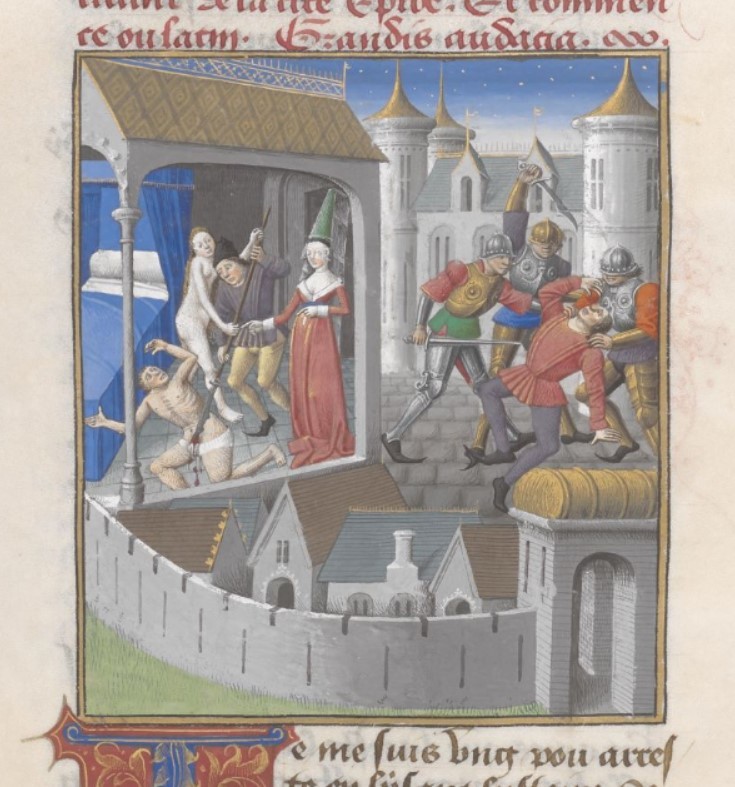 de la cite Epire. Et commen
ce ou latin. Grandis audacia. &c.
Ie me suis vng pou arres